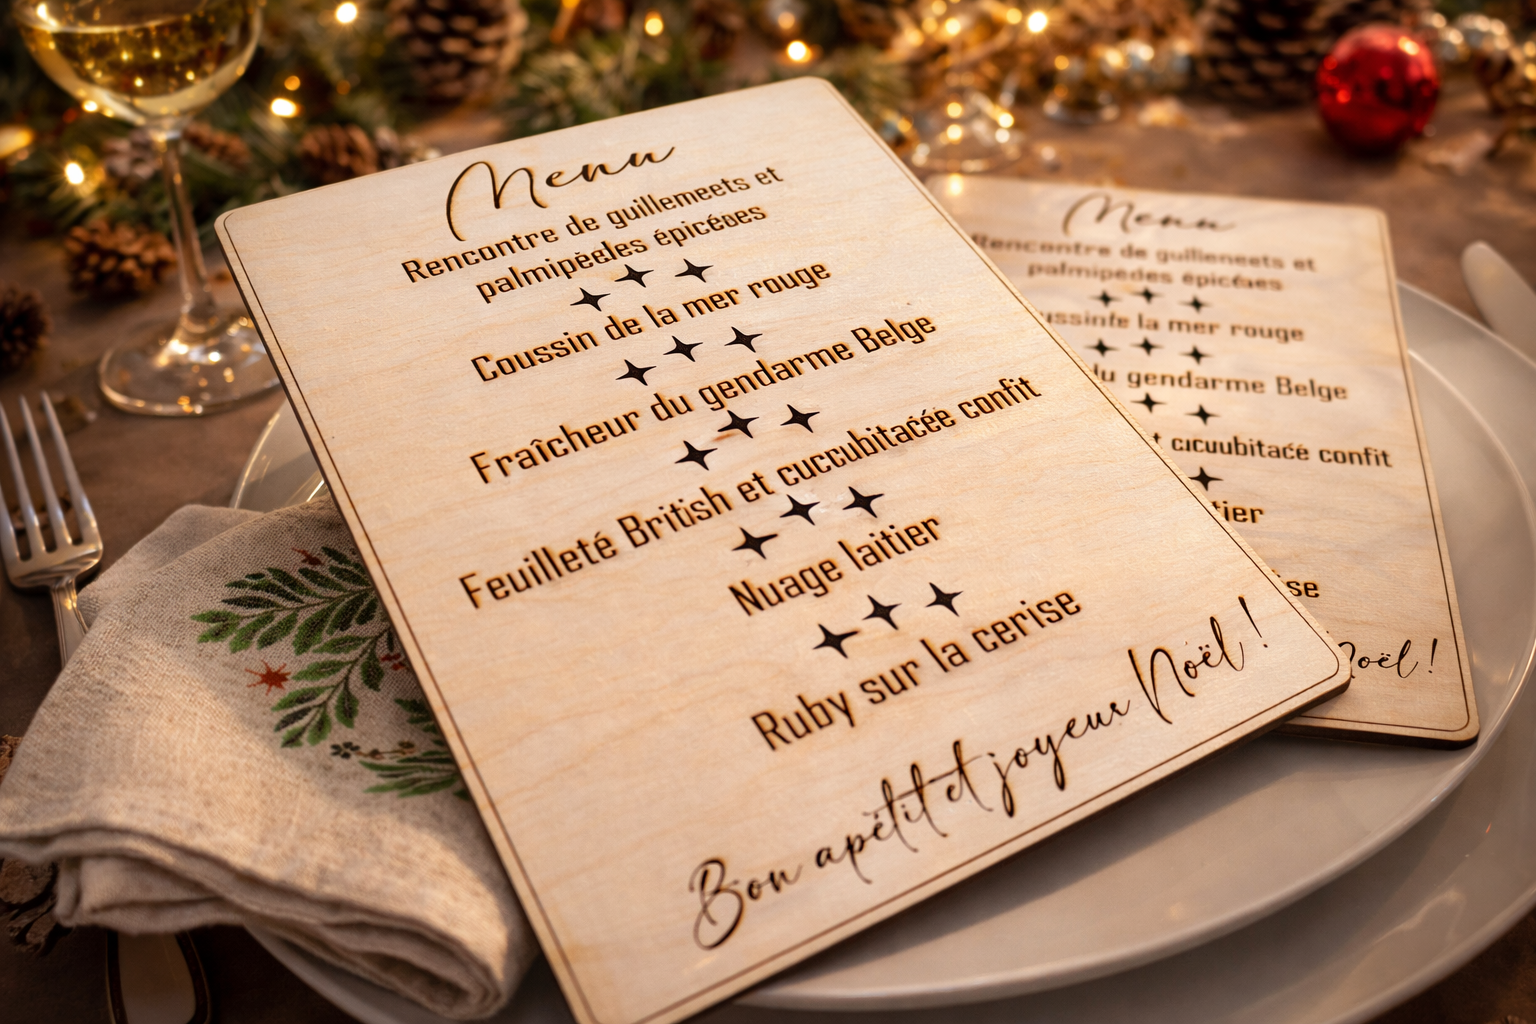 Menu
Rencontre de guillemeets et
palmipèdles épicéoes
Coussin de la mer rouge
Fraîcheur du gendarme Belge
Feuilleté British et cuccubitaćée confit
Nuage laitier
Ruby sur la cerise
Bon apétit et joyeux Noël !
Menu
Rencontre de guilleneets et
palmipedes épicéaes
ussinfe la mer rouge
du gendarme Belge
t cucuubitaće confit
tier
se
Noël !